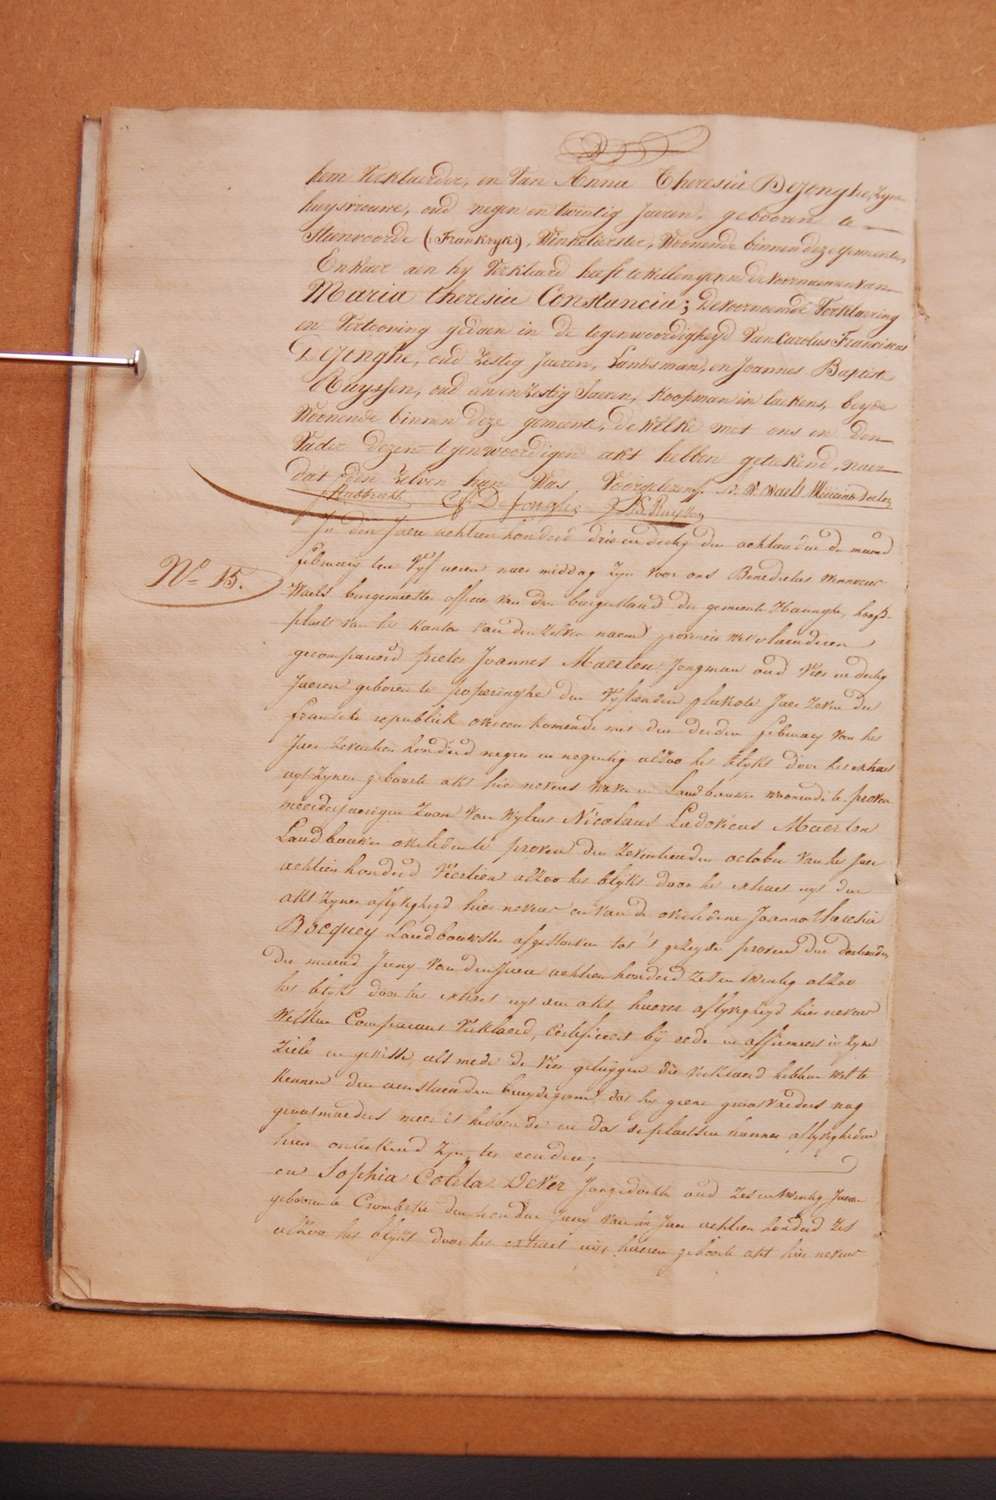 hem Verklaerder, en Van Anna Theresia Dejonghe, Zyne
huysvrouwe, oud negen en twintig Jaeren, gebooren te
Steenvoorde (Frankryke), Winkelierster, Woonende binnen deze gemeente,
En haer aen hy Verklaerd heeft te kellen geven de Voornaemen van
Maria Theresia Constancia; De voornoemde Verklaering
en Vertooning gedaen in de tegenwoordigheyd Van Carolus Franciscus
Dejonghe, oud Zestig Jaeren, Landsman, en Joannes Baptist
Ruyssen, oud een en Zestig Jaeren, Koopman in lackens, beyde
Woonende binnen deze gemeente, dewelke met ons en den
Vader dezen tegenwoordigen akt hebben geteekend, naer
dat den Zelven hun Was Voorgelezen.
C F Dejonghe J B Ruyssen
N.º 15.
In den Jaere achtien honderd drie en dertig den achtsten der maend
february ten Vyf ueren naer middag Zyn Voor ons Benedictus
Waels burgemeester officier Van den burgerstand der gemeente Haringhe, hoofd-
plaets Van het Kanton Van den Zelven naem provincie Westvlaenderen
gecompareerd Pieter Joannes Maerten Jongman oud Vier en dertig
Jaeren geboren te poperinghe den Vyfthienden pluviose Jaer Zeven der
fransche republiek overeen komende met den derden february Van het
Jaer Zeventien honderd negen en negentig alzoo het blykt door het extract
uyt Zynen geboorte akt hier nevens Werkman Landbouwer woonende te proven
meerderjaerigen Zoon Van Wylent Nicolaus Ludovicus Maerten
Landbouwer overleden te proven den Zeventienden october Van het Jaer
achtien honderd Veertien alzoo het blykt door het extract uyt den
akt Zynen aflyvigheyd hier nevens en van de overledene Joanna Theresia
Bacquey Landbouwster afgestorven tot 't gezeyde proven den dertienden
der maend Juny Van den Jaere achtien honderd Zes en twintig alzoo
het blykt door het extract uyt den akt haeren aflyvigheyd hier nevens
Welken Comparant Verklaerd, certificeert by eede en affirmeert in Zyne
Ziele en gewisse als mede de Vier getuygen die Verklaerd hebben wel te
Kennen den aenstaenden bruydegom, dat hy geene grootvaders nog
grootmoeders meer is hebbende en dat de plaetsen hunner aflyvigheden
hun onbekend Zyn, ter eender;
en Sophia Coleta Dever Jongedochter oud Zes en twintig Jaeren
geboren te Crombeke den tienden Juny Van het Jaer achtien honderd Zes
alzoo het blykt door het extract uyt haeren geboorte akt hier nevens